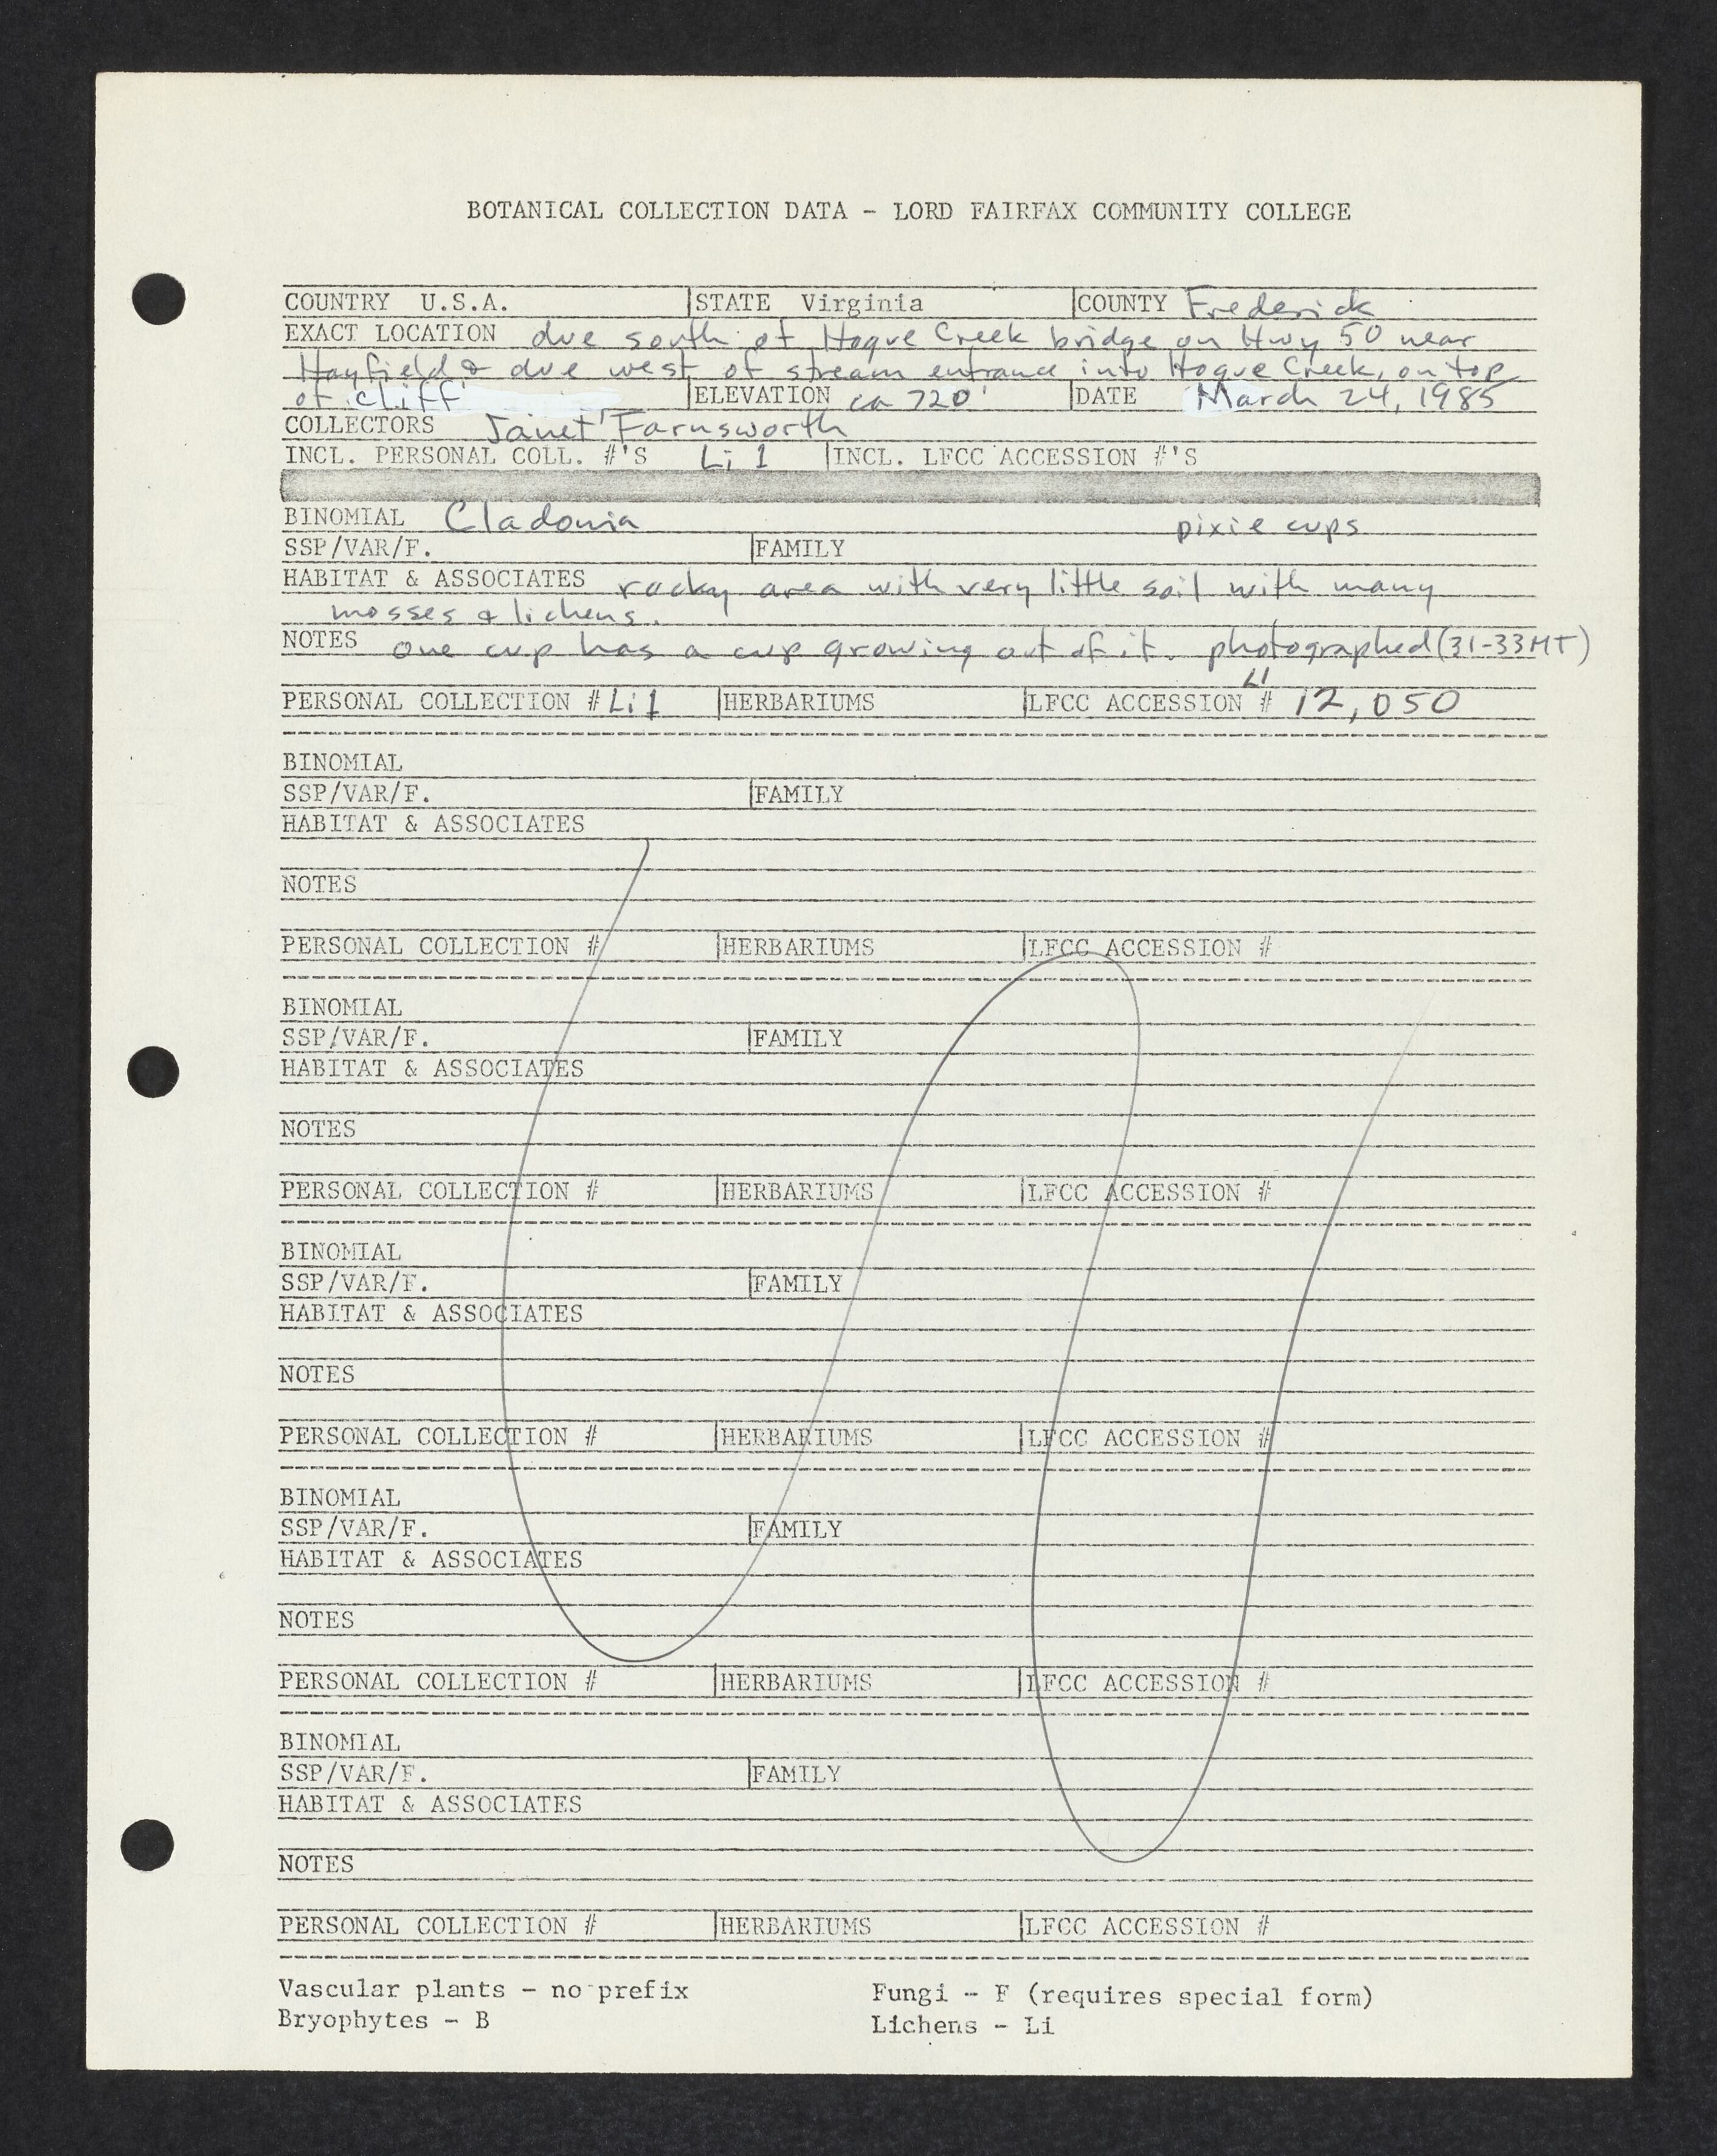 BOTANICAL COLLECTION DATA - LORD FAIRFAX COMMUNITY COLLEGE
COUNTRY U.S.A. STATE Virginia COUNTY Frederick
EXACT LOCATION due south of Hogue Creek bridge on Hwy 50 near
Hayfield & due west of stream entrance into Hogue Creek, on top
of cliff ELEVATION ca 720' DATE March 24, 1985
COLLECTORS Janet Farnsworth
INCL. PERSONAL COLL. #'S Li 1 INCL. LFCC ACCESSION #'S
BINOMIAL Cladonia pixie cups
SSP/VAR/F. FAMILY
HABITAT & ASSOCIATES rocky area with very little soil with many
mosses & lichens.
NOTES one cup has a cup growing out of it. photographed (31-33MT)
PERSONAL COLLECTION # Li 1 HERBARIUMS LFCC ACCESSION # Li 12,050
BINOMIAL
SSP/VAR/F. FAMILY
HABITAT & ASSOCIATES
NOTES
PERSONAL COLLECTION # HERBARIUMS LFCC ACCESSION #
BINOMIAL
SSP/VAR/F. FAMILY
HABITAT & ASSOCIATES
NOTES
PERSONAL COLLECTION # HERBARIUMS LFCC ACCESSION #
BINOMIAL
SSP/VAR/F. FAMILY
HABITAT & ASSOCIATES
NOTES
PERSONAL COLLECTION # HERBARIUMS LFCC ACCESSION #
BINOMIAL
SSP/VAR/F. FAMILY
HABITAT & ASSOCIATES
NOTES
PERSONAL COLLECTION # HERBARIUMS LFCC ACCESSION #
BINOMIAL
SSP/VAR/F. FAMILY
HABITAT & ASSOCIATES
NOTES
PERSONAL COLLECTION # HERBARIUMS LFCC ACCESSION #
Vascular plants - no prefix Fungi - F (requires special form)
Bryophytes - B Lichens - Li